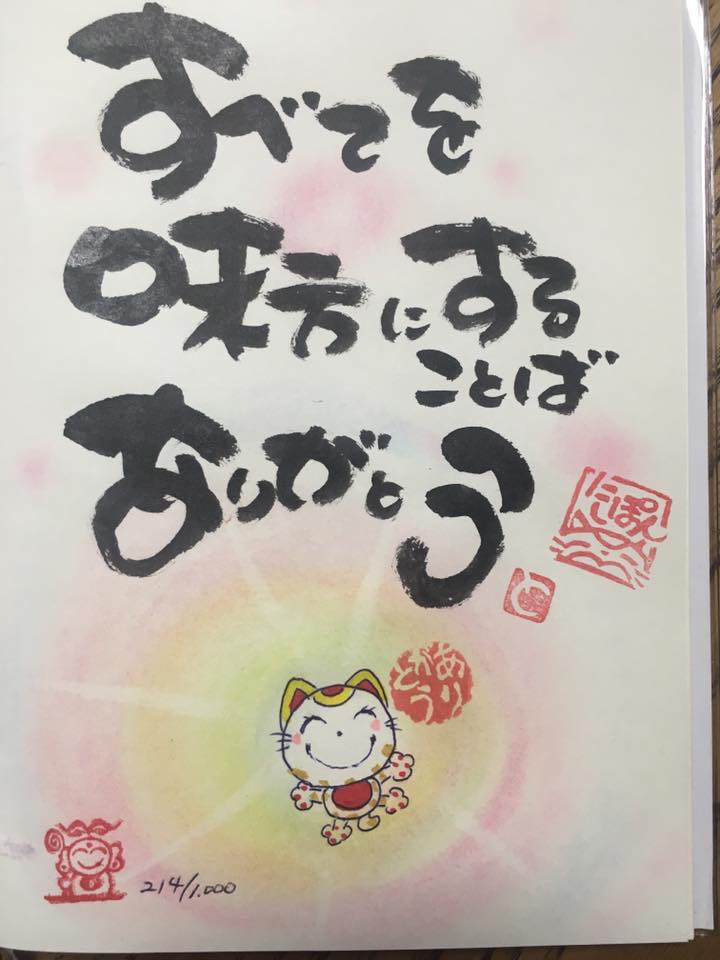 すべてを
味方にする
ことば
ありがとう
にっぽん
ありがとう
214/1.000